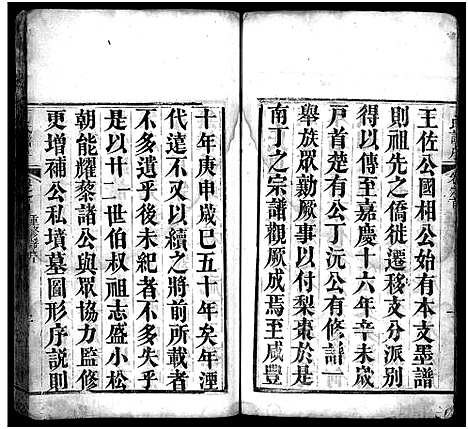 王佐公國相公始有本支墨譜
則祖先之僑徙遷移支分派别
得以傳至嘉慶十六年辛未歲
戸首楚有公丁沅公有修譜一
舉族眾勷厥事以付梨棗於是
南丁之宗譜觀厥成焉至咸豐
十年庚申歲巳五十年矣年湮
代遠不以續之將前所載者
不多遺乎後未紀者不多失乎
是以廿一世伯叔祖志盛小松
朝能耀藜諸公與眾協力監修
更增補公私墳墓圖形序説則